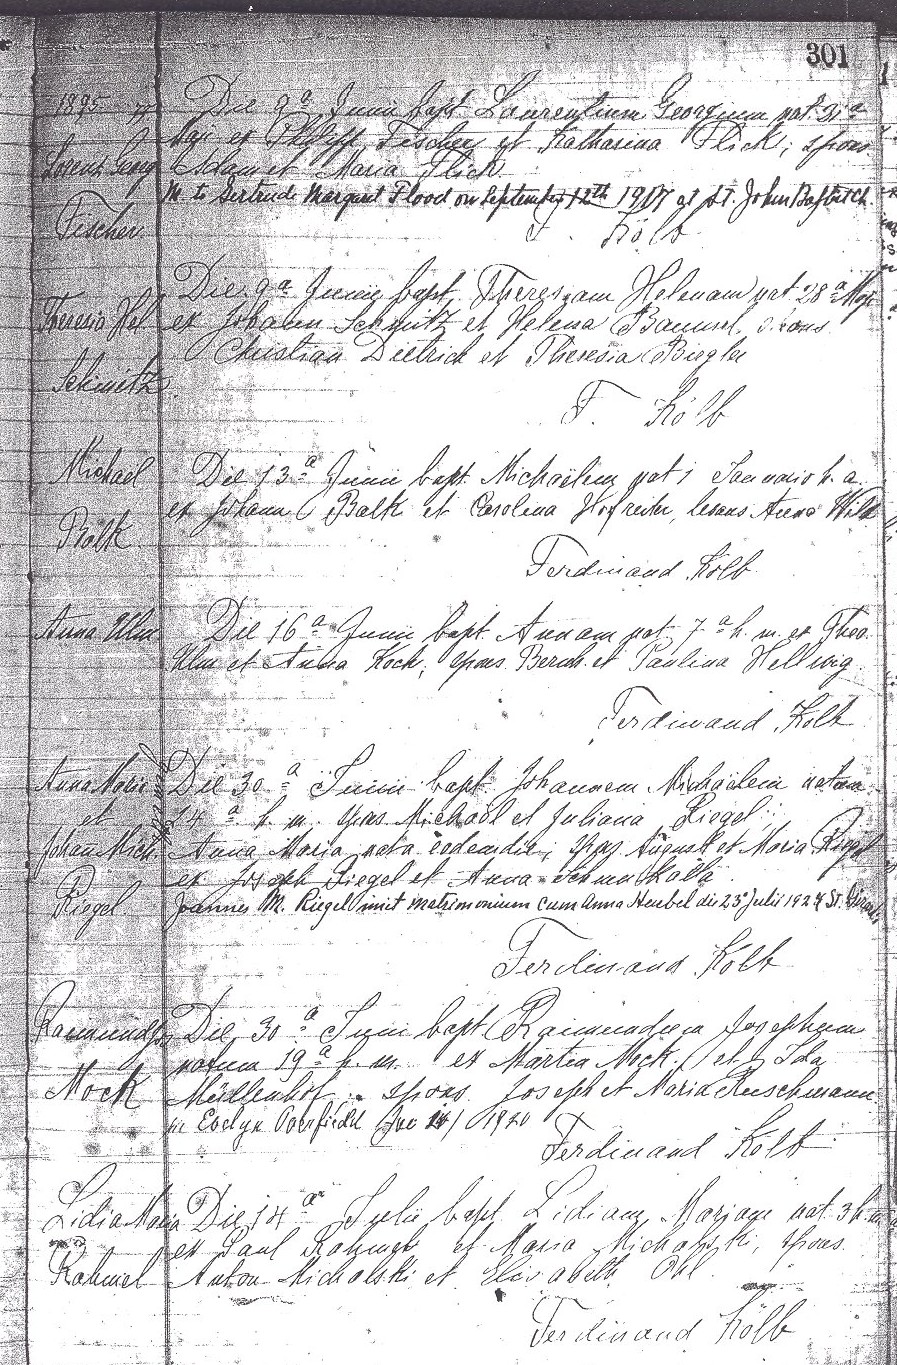 301
1895
Lorenz Georg
Fischer
Die 9ª Junii bapt. Laurentium Georgium nat. 31ª
Maii ex Philipp Fischer et Katharina Flick; spons
Adam et Maria Flick
M. to Gertrude Margaret Flood on September 12th 1917 at St. John Baptist Ch.
F. Kölb
Theresia Hel.
Schmitz
Die 9ª Junii bapt. Theresiam Helenam nat 28ª Maji
ex Johann Schmitz et Helena spons
Christian Dietrich et Theresia Biegler
F. Kölb
Michael
Balk
Die 13ª Junii bapt. Michaëlem nat 1 Januario h. a.
ex Johann Balk et Carolina Hofreiter, levans Anna Wilk
Ferdinand Kölb
Anna Ulm
Die 16ª Junii bapt. Annam nat 7ª h. m. ex Theo.
Ulm et Anna Koch; spons Bernh. et Paulina Hellwig
Ferdinand Kolb
Anna Maria
et
Johan Mich.
Riegel
Die 30ª Junii bapt. Johannem Michaëlem natum
14ª h. m. spons Michael et Juliana Riegel;
Anna Maria nata eodem die; spons August et Maria Riegel
ex Joseph Riegel et Anna
Joannes M. Riegel init matrimonium cum Anna die 23 Julii St.
Ferdinand Kölb
Raimund Jos
Mock
Die 30ª Junii bapt Raimundum Josephum
natum 19ª h. m. ex Martin Mock et Ida
Müllenhof; spons. Joseph et Maria Ruschmann
m Evelyn 1920
Ferdinand Kölb
Lidia Maria
Rahmel
Die 14ª Julii bapt Lidiam Mariam nat 3 h. m.
ex Paul Rahmel et Maria Michalski; spons.
Anton Michalski et Elisabeth Ohl
Ferdinand Kölb